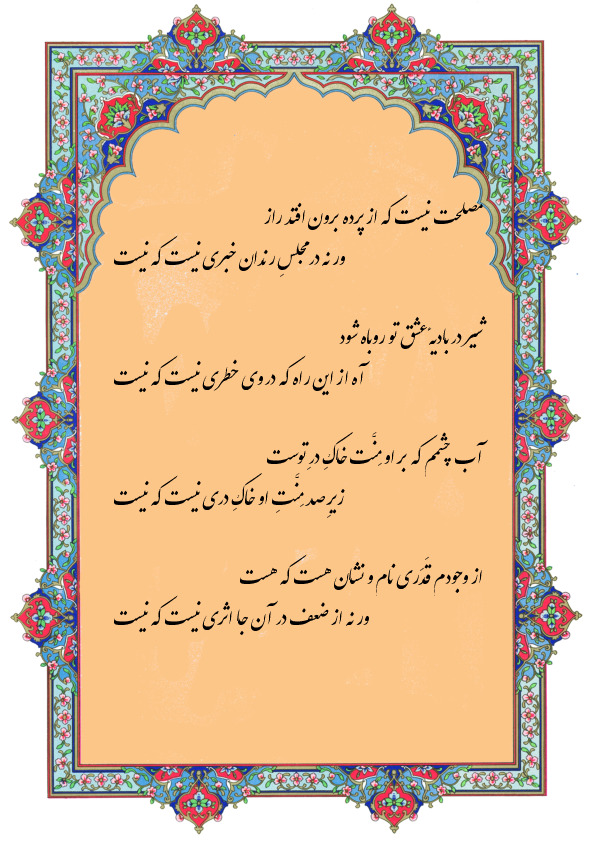 مصلحت نیست که از پرده برون افتد راز
ور نه در مجلسِ رندان خبری نیست که نیست
شیر در بادیهٔ عشق تو روباه شود
آه از این راه که در وی خطری نیست که نیست
آب چشمم که بر او مِنَّت خاکِ درِ توست
زیرِ صد مِنَّتِ او خاکِ دری نیست که نیست
از وجودم قَدَری نام و نشان هست که هست
ور نه از ضعف در آن جا اثری نیست که نیست